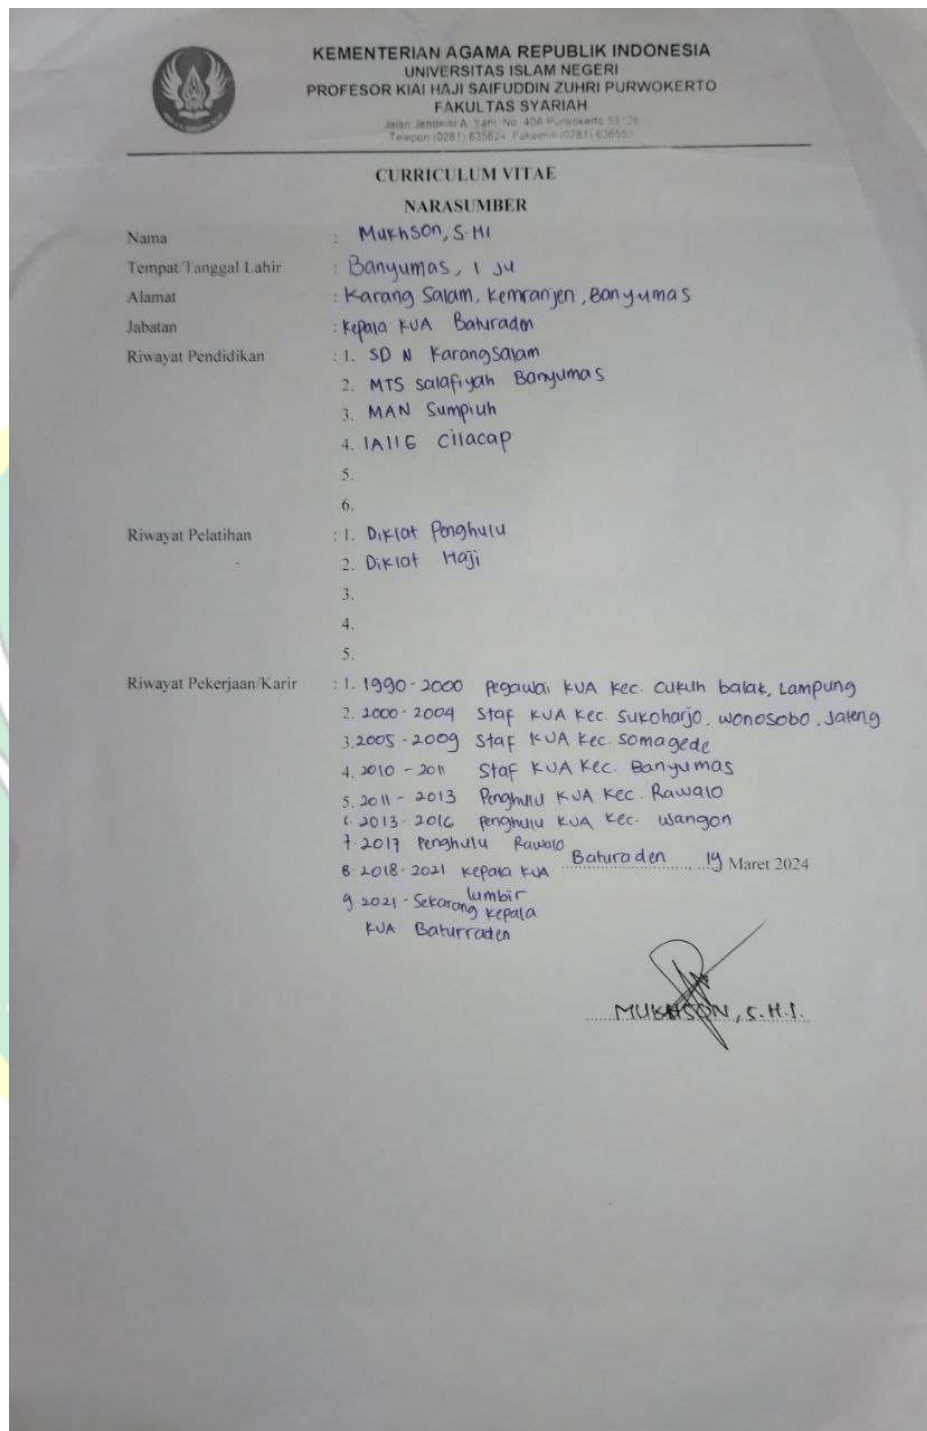 KEMENTERIAN AGAMA REPUBLIK INDONESIA
UNIVERSITAS ISLAM NEGERI
PROFESOR KIAI HAJI SAIFUDDIN ZUHRI PURWOKERTO
FAKULTAS SYARIAH
Jalan Jenderal A. Yani, No. 40A Purwokerto 53126
Telepon (0281) 635624 Faksimili (0281) 636553
CURRICULUM VITAE
NARASUMBER
Nama : Mukhson, S.HI
Tempat Tanggal Lahir : Banyumas, 1 Ju
Alamat : Karang Salam, Kemranjen, Banyumas
Jabatan : Kepala KUA Baturaden
Riwayat Pendidikan : 1. SD N Karangsalam
2. MTS Salafiyah Banyumas
3. MAN Sumpiuh
4. IAIIG Cilacap
5.
6.
Riwayat Pelatihan : 1. Diklat Penghulu
2. Diklat Haji
3.
4.
5.
Riwayat Pekerjaan/Karir : 1. 1990-2000 Pegawai KUA Kec. Cukuh balak, Lampung
2. 2000-2004 Staf KUA Kec. Sukoharjo, Wonosobo. Jateng
3. 2005-2009 Staf KUA Kec. Somagede
4. 2010 - 2011 Staf KUA Kec. Banyumas
5. 2011 - 2013 Penghulu KUA Kec. Rawalo
6. 2013-2016 Penghulu KUA Kec. Wangon
7. 2017 Penghulu Rawalo
8. 2018-2021 Kepala KUA Lumbir
Baturaden 19 Maret 2024
9. 2021 - Sekarang Kepala
KUA Baturraden
MUKHSON, S.H.I.